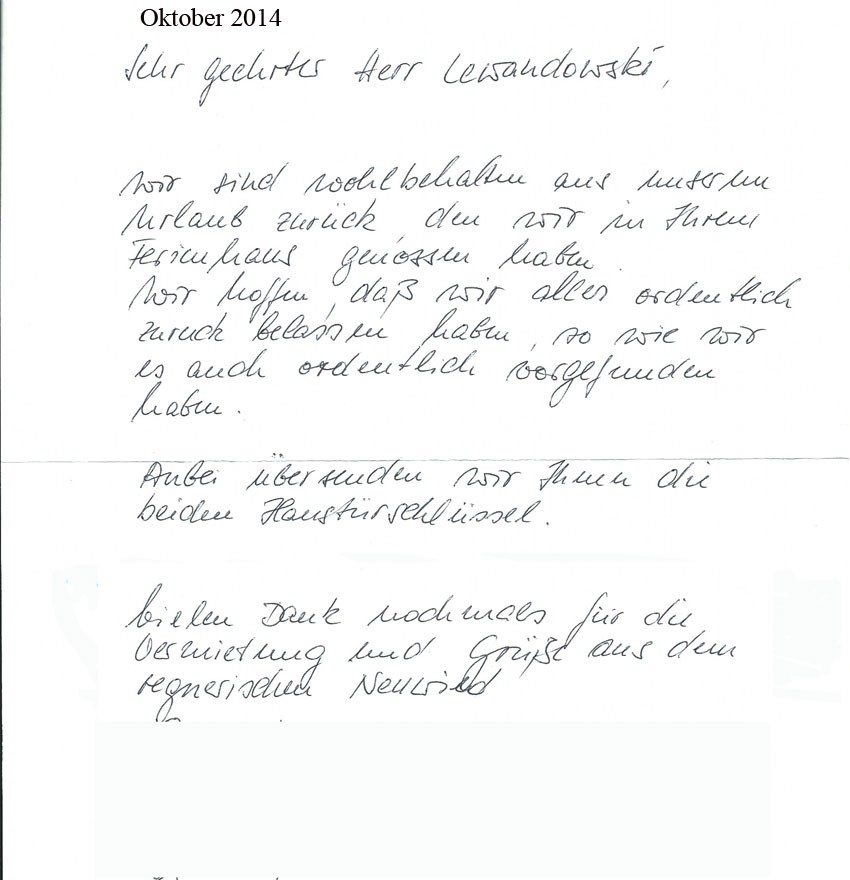 Oktober 2014
Sehr geehrter Herr Lewandowski,
wir sind wohlbehalten aus unserem
Urlaub zurück, den wir in Ihrem
Ferienhaus genossen haben.
Wir hoffen, daß wir alles ordentlich
zurück belassen haben, so wie wir
es auch ordentlich vorgefunden
haben.
Anbei übersenden wir Ihnen die
beiden Haustürschlüssel.
Vielen Dank nochmals für die
Vermietung und Grüße aus dem
regnerischen Neuwied